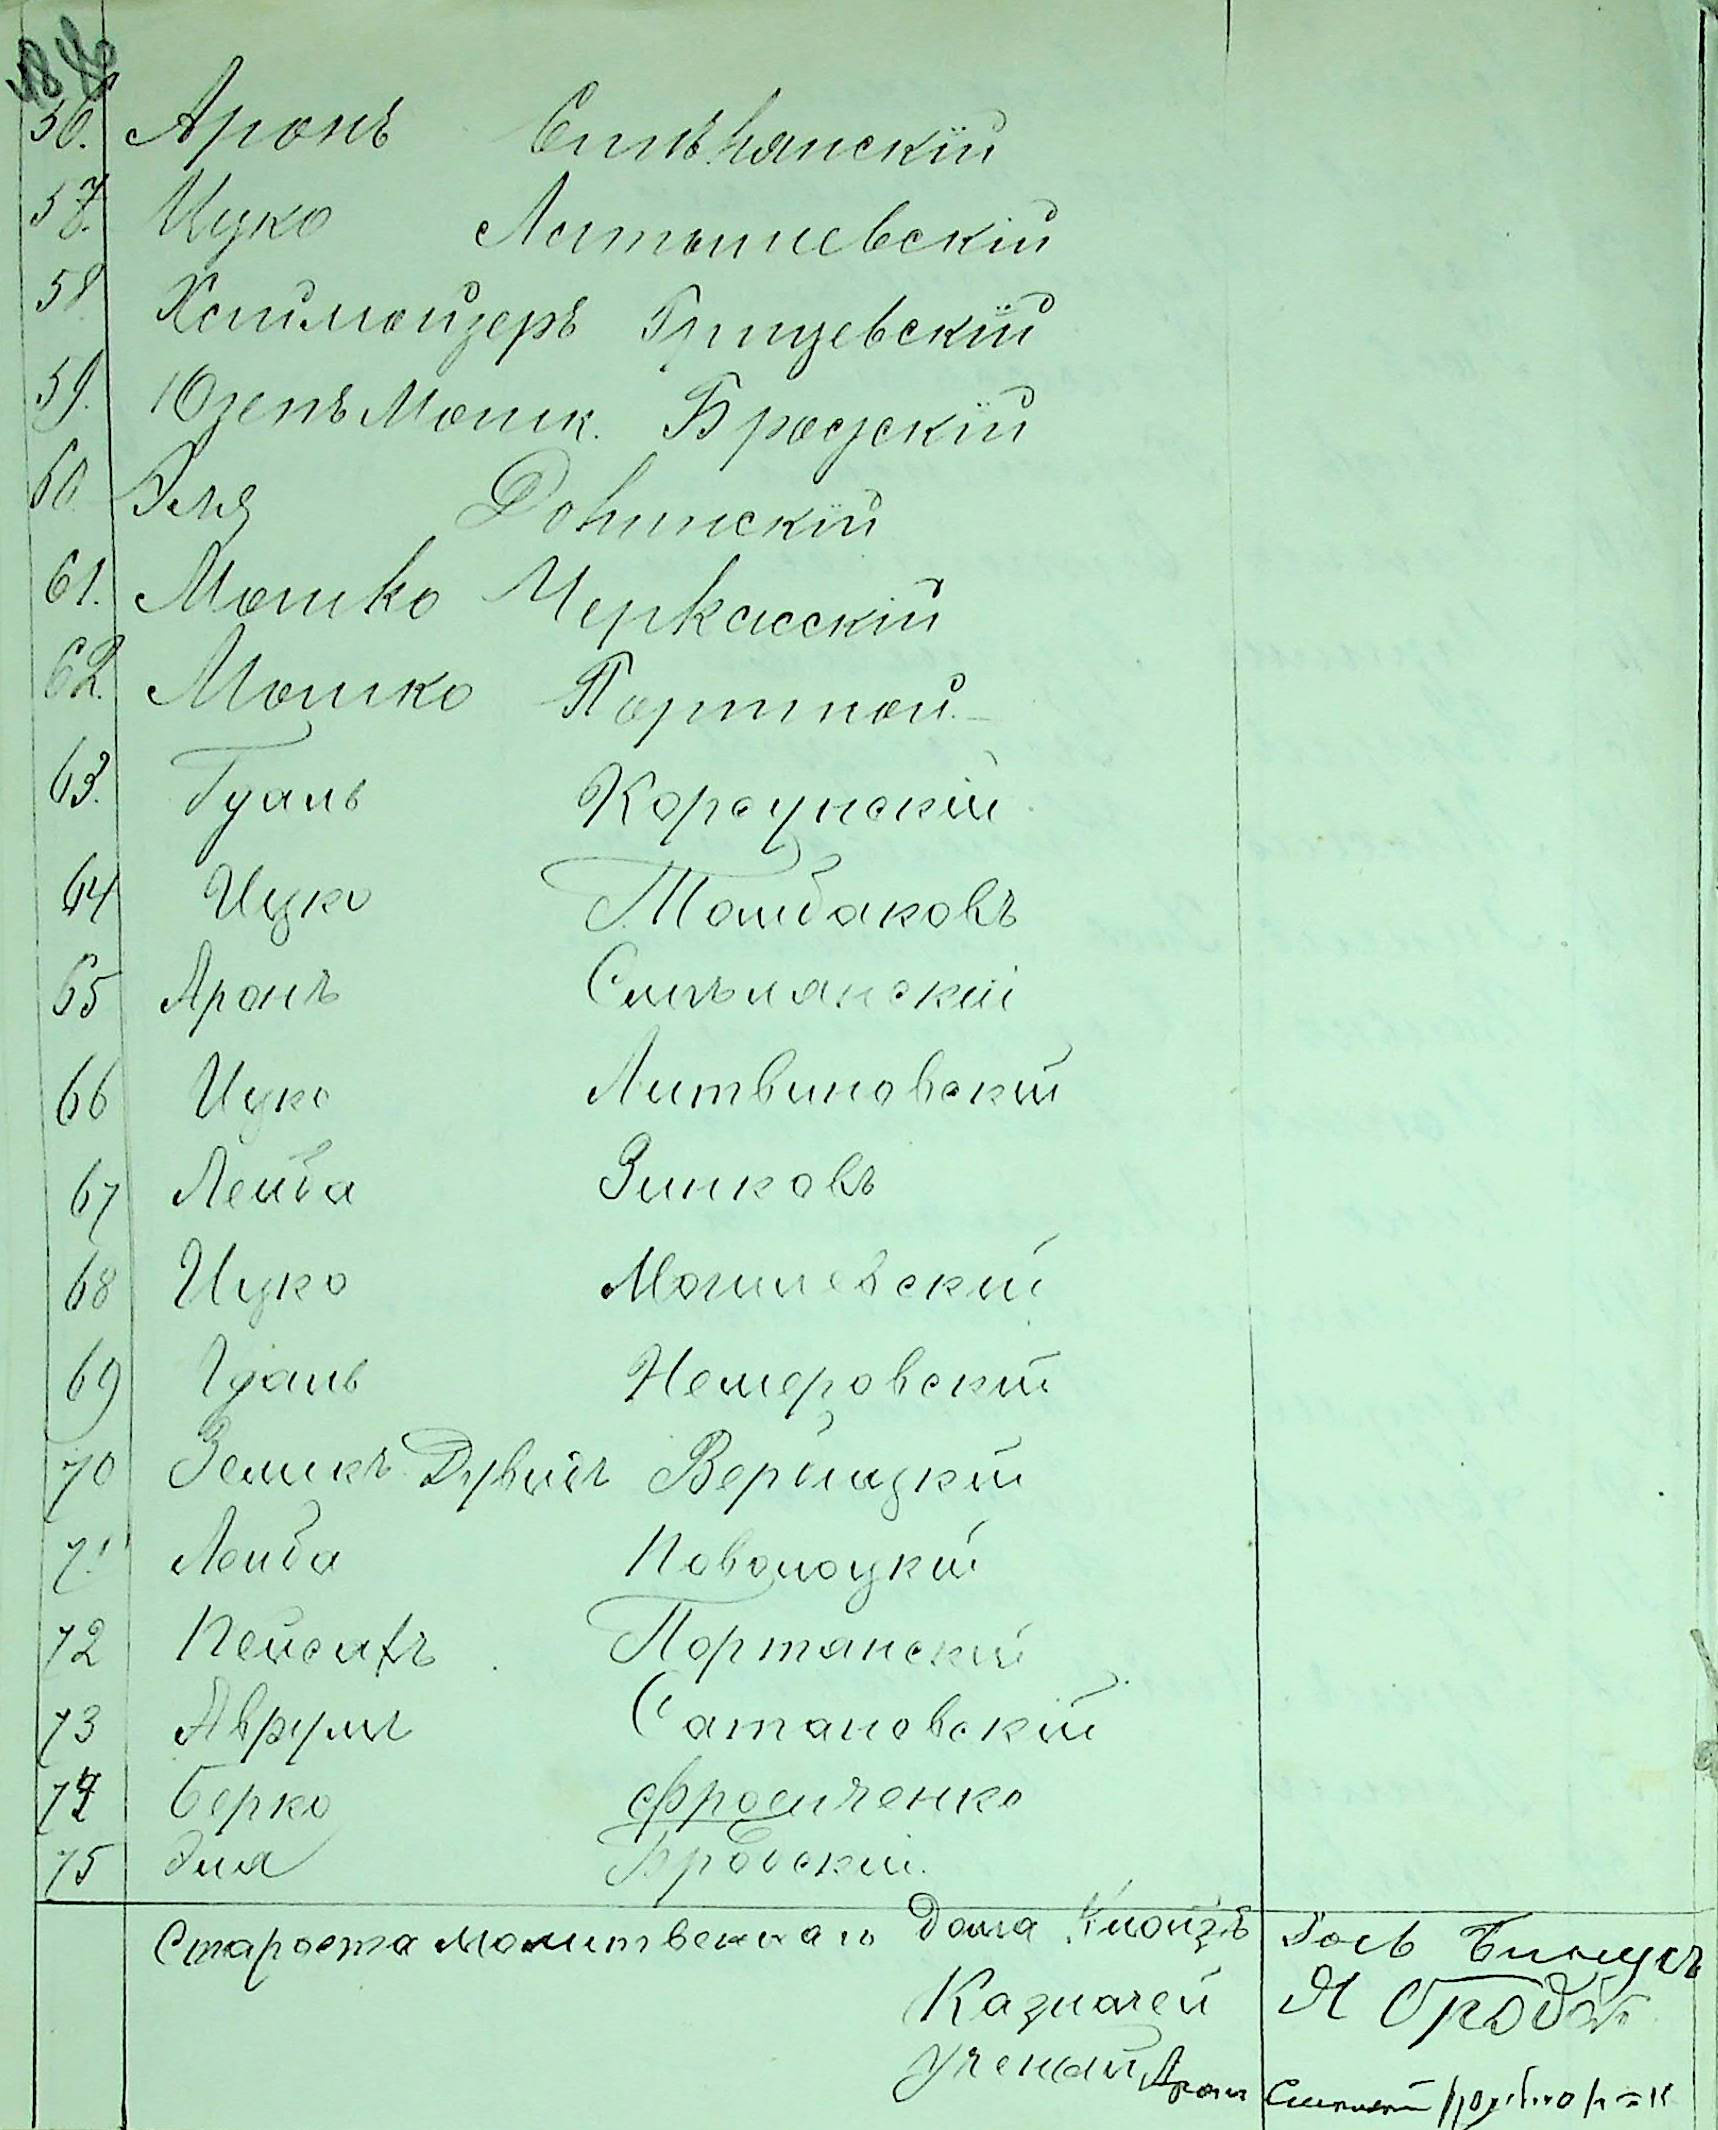 56. Аронъ Смѣлянскій
57. Ицко Латышевскій
58 Хаимлейзеръ Грицевскій
59. Юзепъ Мошк. Бродскій
60 Эля Долинскій
61. Мошко Черкасскій
62. Мошко Портной
63. Гдаль Корсунскій
64 Ицко Толбаковъ
65 Аронъ Смѣлянскій
66 Ицко Литвиновскій
67 Лейба Зинковъ
68 Ицко Могилевскій
69 Гдаль Немеровскій
70 Зеликъ Дувидъ Вербицкій
71 Лейба Поволоцкій
72 Пейсахъ Портянскій
73 Аврумъ Сатановскій
74 Берко Фроимченко
75 Эля Бродскій
Староста молитвеннаго дома Клойзъ
Казначей Я Брод
Ученый Арон